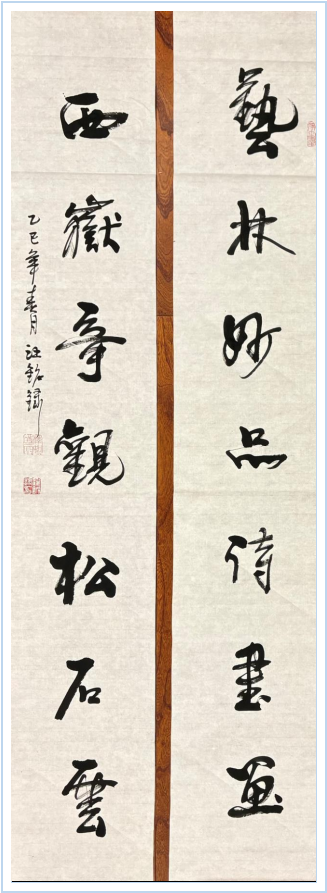 藝林妙品詩書畫
西嶽奇觀松石雲
乙巳年春月汪銘錄